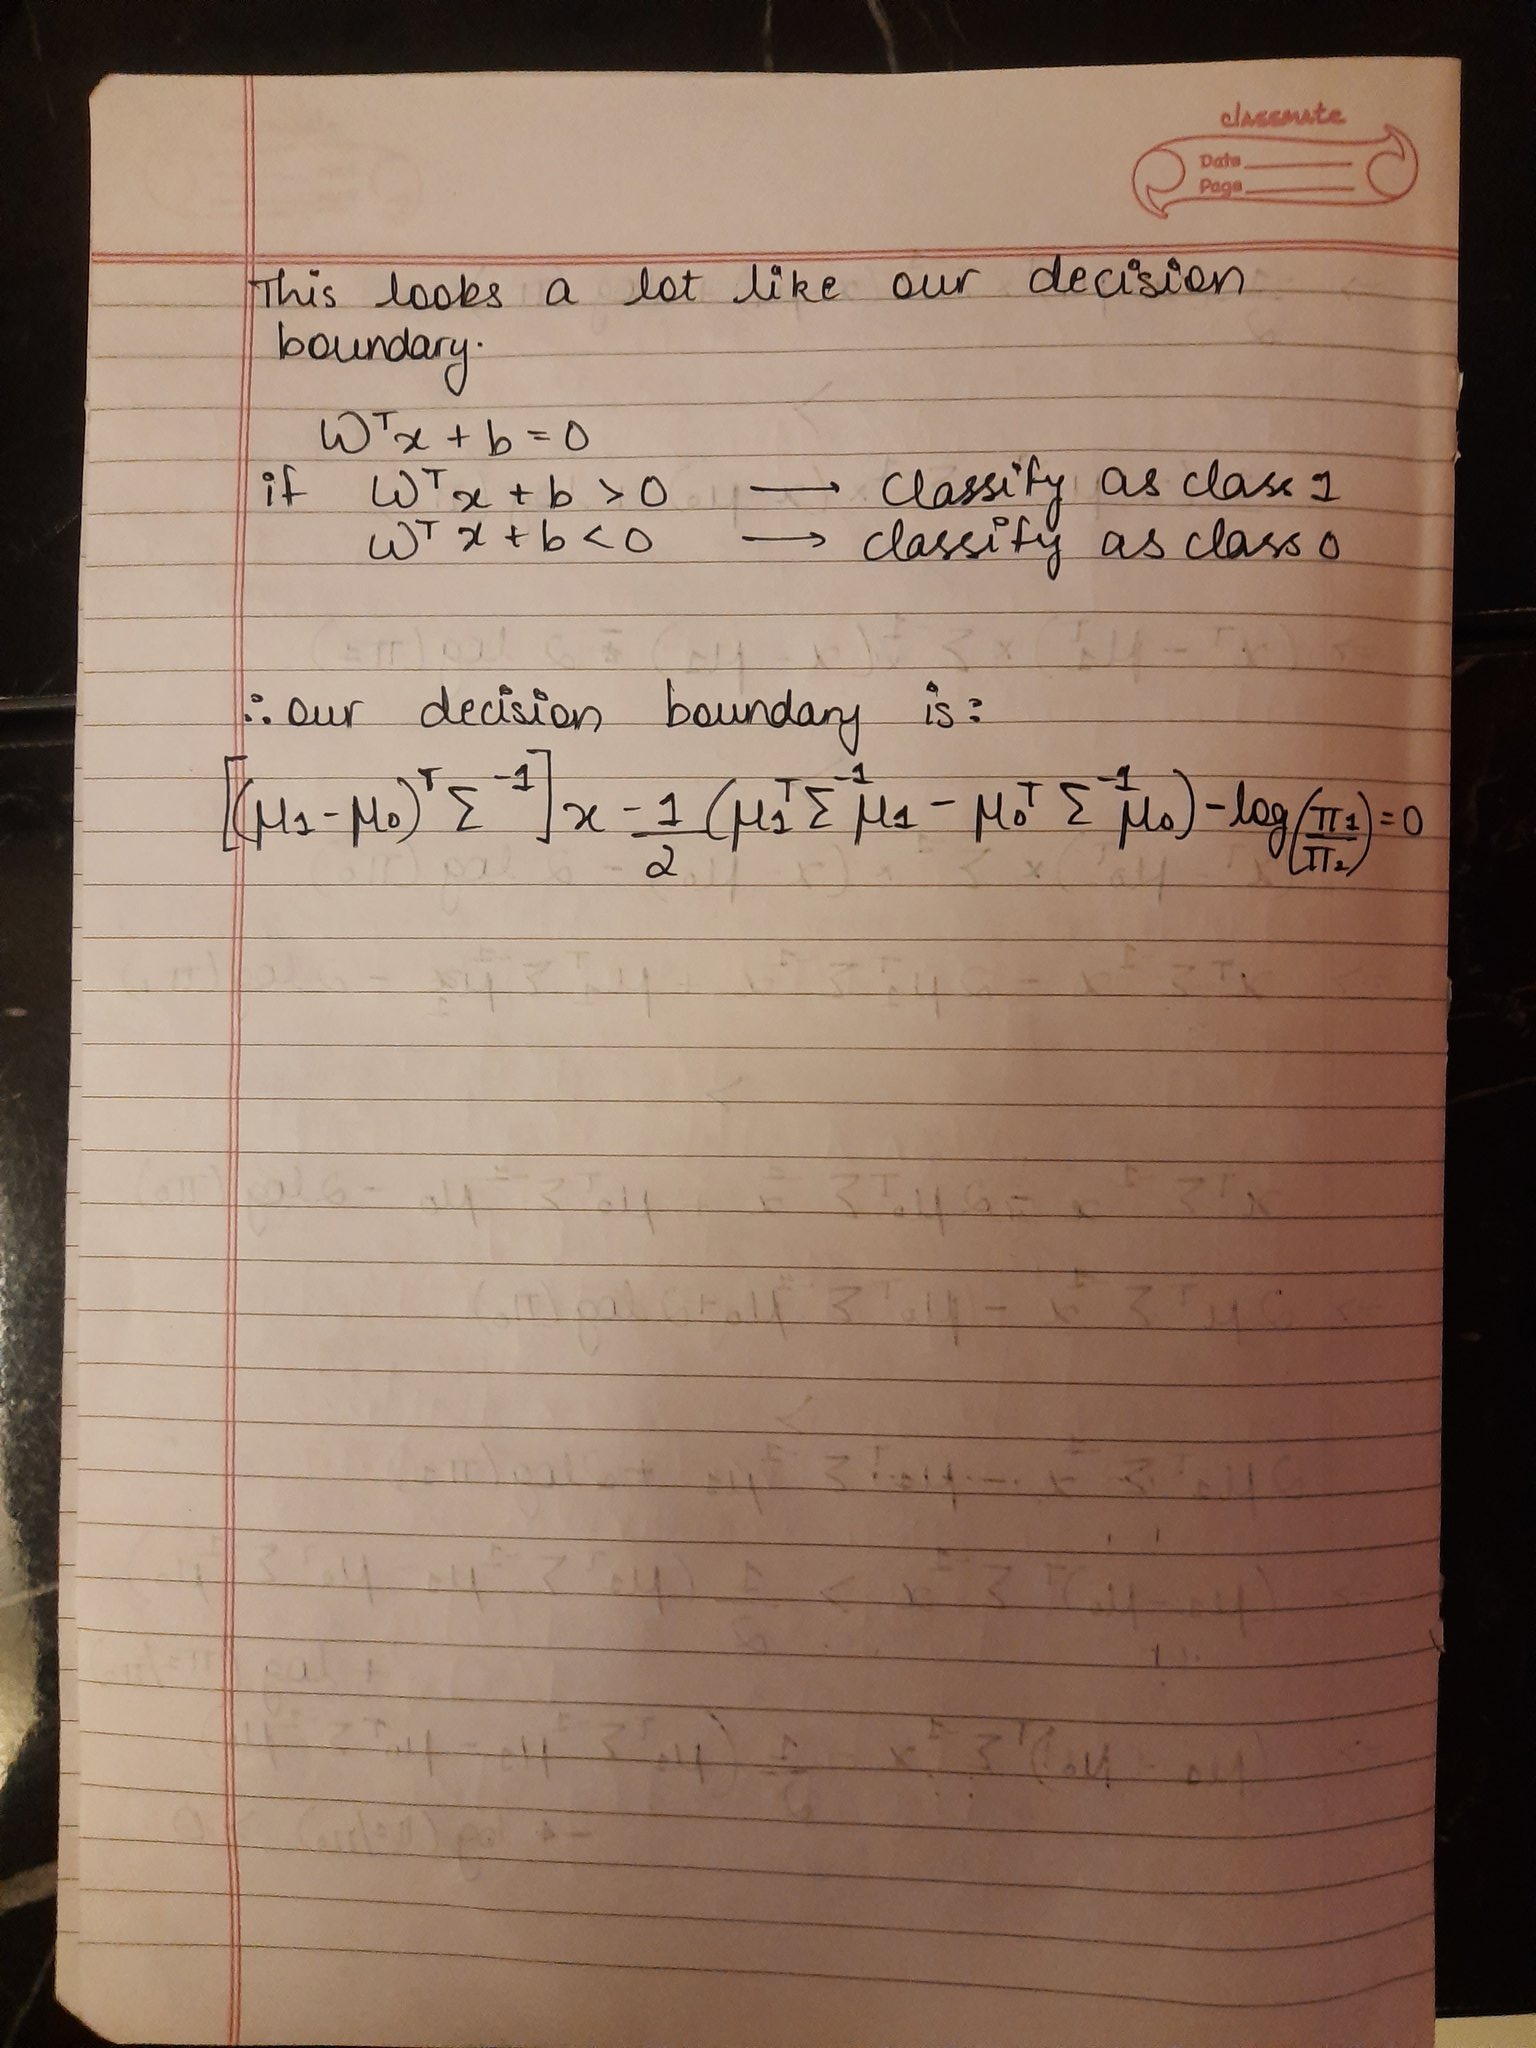 classmate
Date
Page
This looks a lot like our decision
boundary.
Wᵀx + b = 0
if Wᵀx + b > 0 → classify as class 1
Wᵀx + b < 0 → classify as class 0
∴ our decision boundary is:
[(μ₁ - μ₀)ᵀ Σ⁻¹] x - 1/2 (μ₁ᵀ Σ⁻¹ μ₁ - μ₀ᵀ Σ⁻¹ μ₀) - log(π₁/π₂) = 0